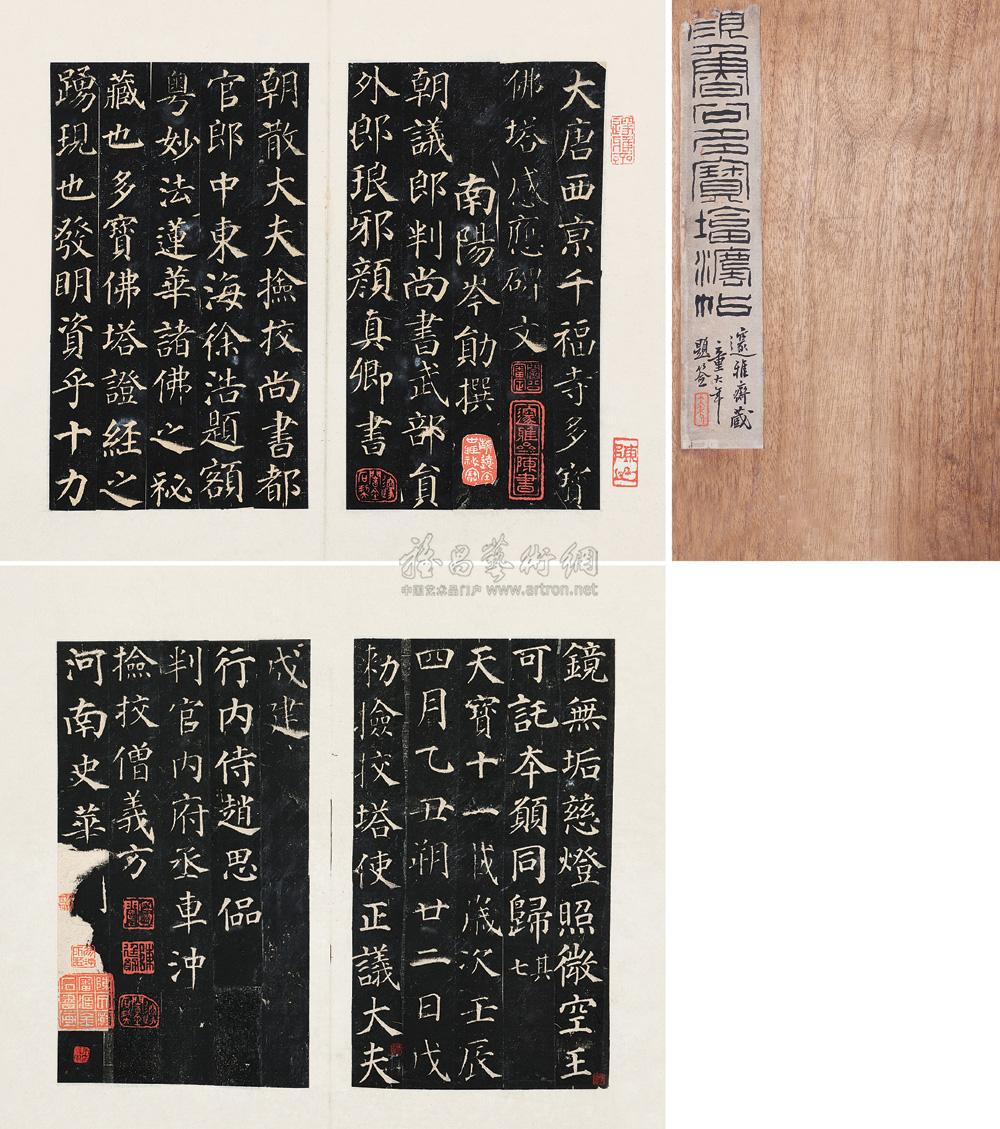 大唐西京千福寺多寶
佛塔感應碑文
南陽岑勛撰
朝議郎判尚書武部員
外郎琅邪顏真卿書
朝散大夫撿挍尚書都
官郎中東海徐浩題額
粵妙法蓮華諸佛之祕
藏也多寶佛塔證經之
踴現也發明資乎十力
顏魯公多寶塔法帖
邃雅齋藏
童大年
題簽
雅昌藝術網
中国艺术品门户 www.artron.net
鏡無垢慈燈照微空王
可託本願同歸其七
天寶十一載歲次壬辰
四月乙丑朔廿二日戊
戌建
勑撿挍塔使正議大夫
行内侍趙思偘
判官内府丞車沖
撿挍僧義方
河南史華